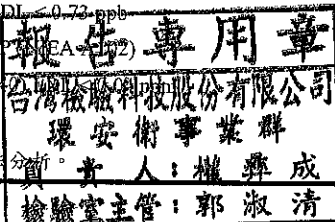 DL < 0.73 ppb
報告專用章
台灣檢驗科技股份有限公司
環安衛事業群
分析。
負責人：權彝成
檢驗室主管：郭淑清